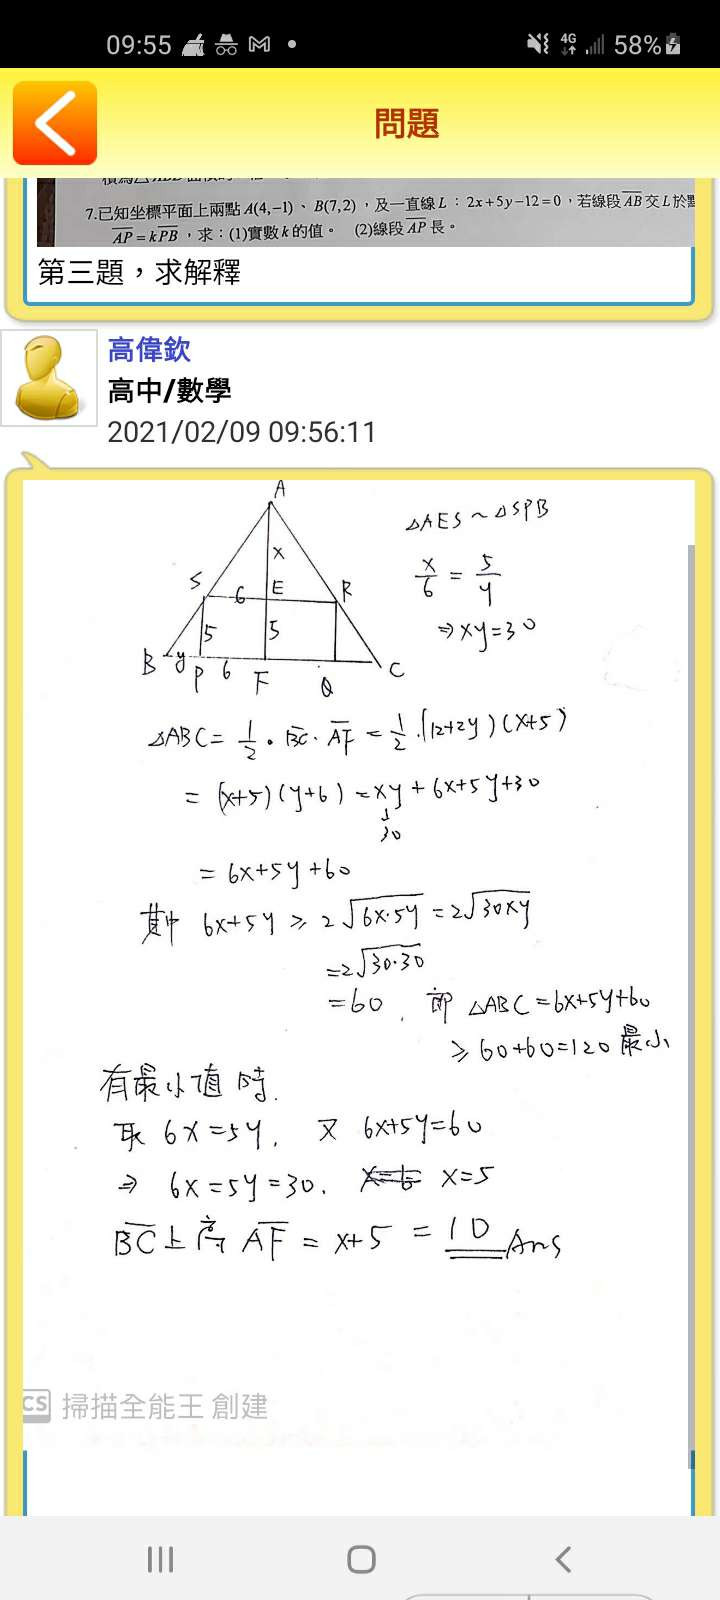 09:55
4G
58%
問題
7.已知坐標平面上兩點A(4,-1)、B(7,2),及一直線L:2x+5y-12=0,若線段AB交L於
AP=kPB,求:(1)實數k的值。 (2)線段AP長。
第三題,求解釋
高偉欽
高中/數學
2021/02/09 09:56:11
A
x
S 6 E R
5 5
B y P 6 F Q C
△AES~△SPB
x/6 = 5/y
⇒xy=30
△ABC= 1/2 · BC · AF = 1/2 ·(12+2y)(x+5)
= (x+5)(y+6) = xy + 6x+5y+30
↓
30
= 6x+5y+60
其中 6x+5y ≥ 2√6x·5y = 2√30xy
=2√30·30
=60. 即 △ABC=6x+5y+60
≥ 60+60=120 最小
有最小值時.
取 6x=5y, 又 6x+5y=60
⇒ 6x=5y=30. x=5
BC上高 AF = x+5 = 10 Ans
CS 掃描全能王 創建